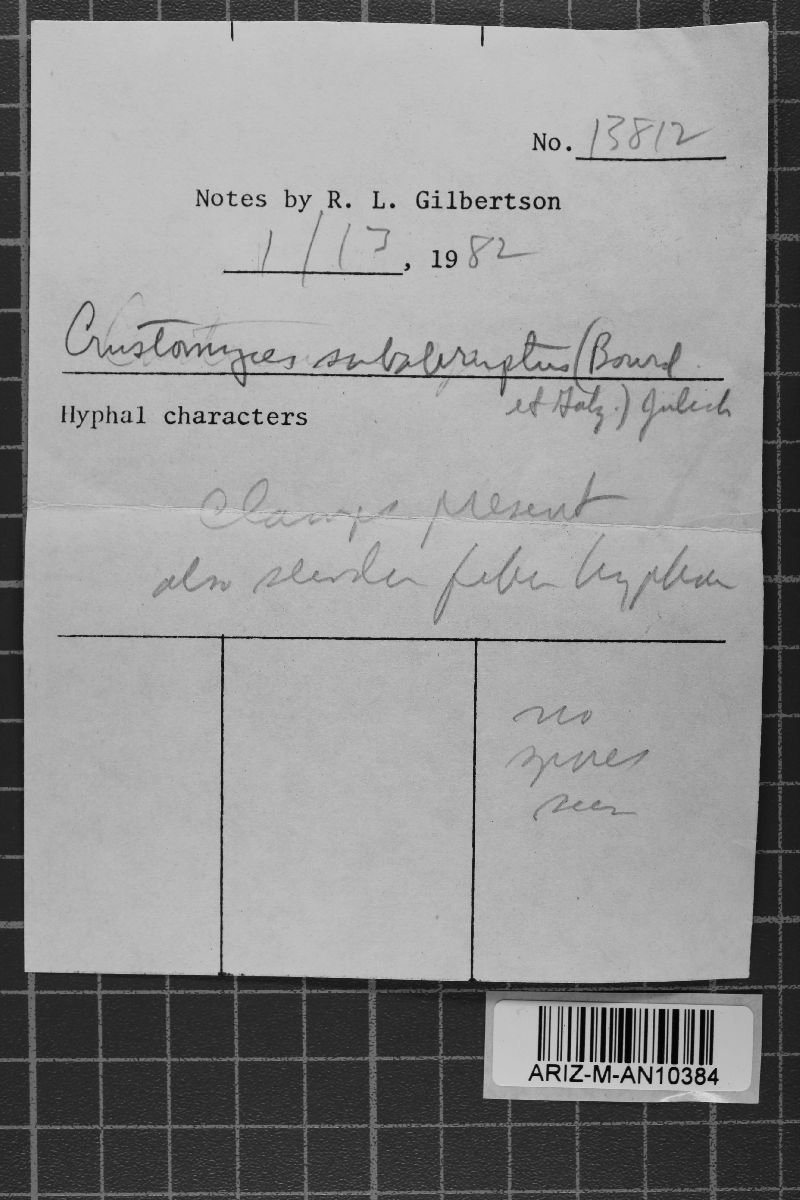 No. 13812
Notes by R. L. Gilbertson
1/13, 1982
Crustomyces subabruptus (Bourd
et Galz.) Jülich
Hyphal characters
clamps present
also slender fiber hyphae
no
spores
seen
ARIZ-M-AN10384